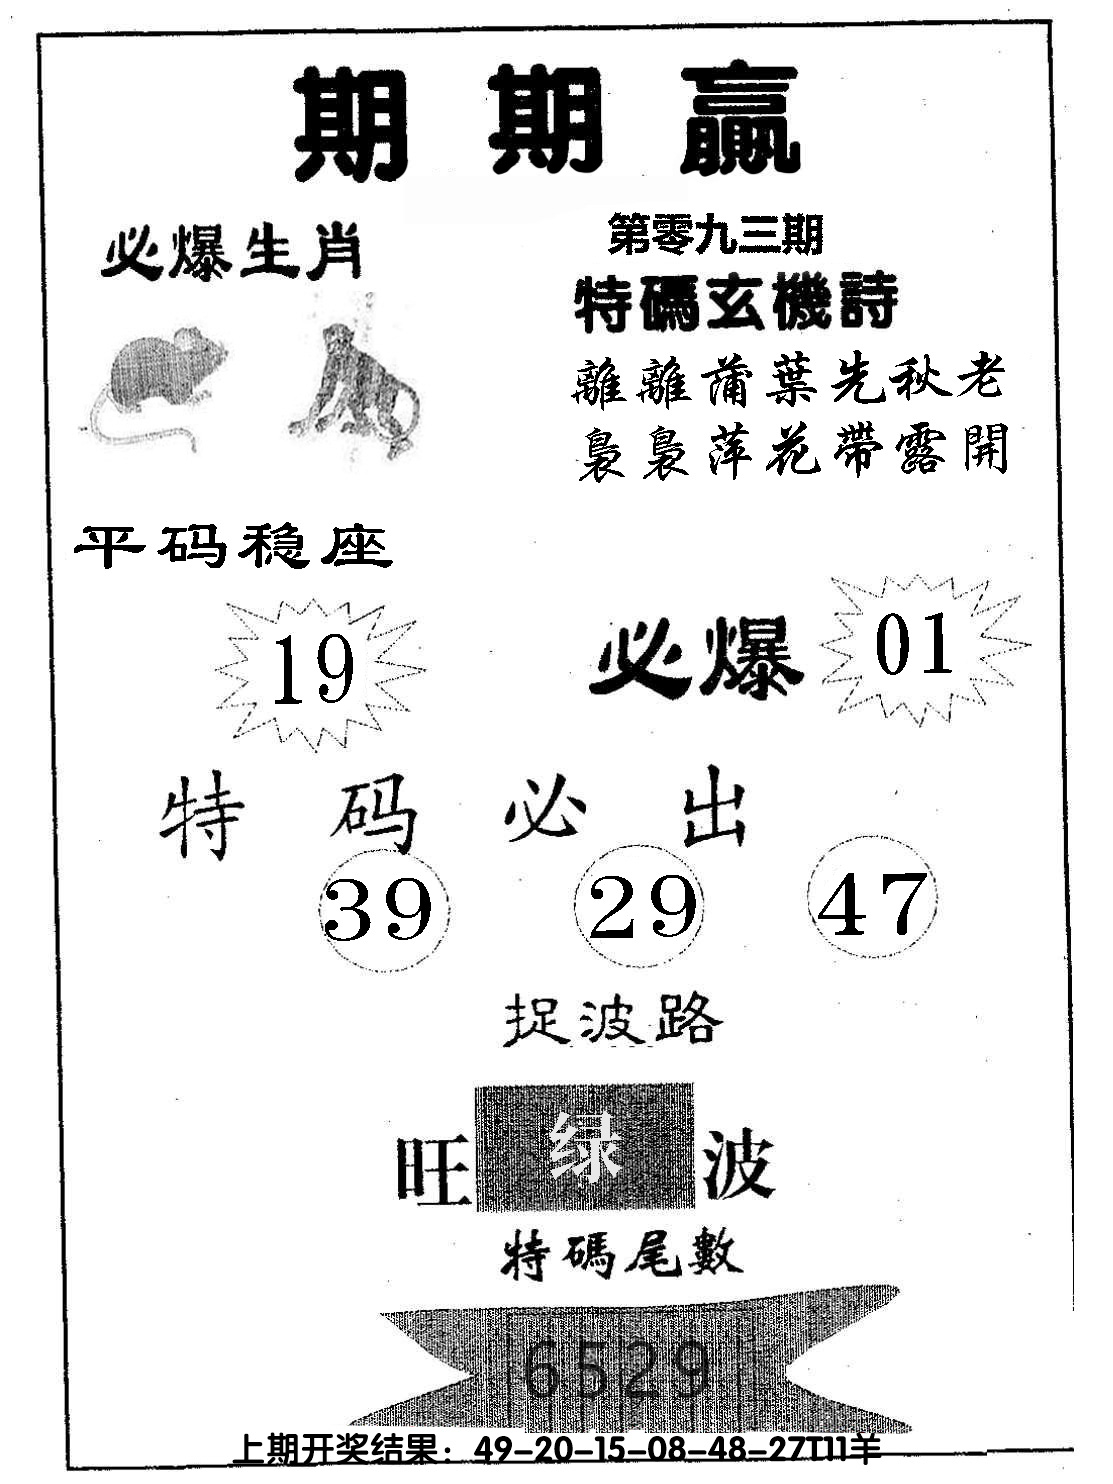 期期赢
必爆生肖
第零九三期
特碼玄機詩
離離蒲葉先秋老
裊裊萍花帶露開
平码稳座
19
必爆
01
特码必出
39 29 47
捉波路
旺绿波
特碼尾數
6529
上期开奖结果：49-20-15-08-48-27T11羊